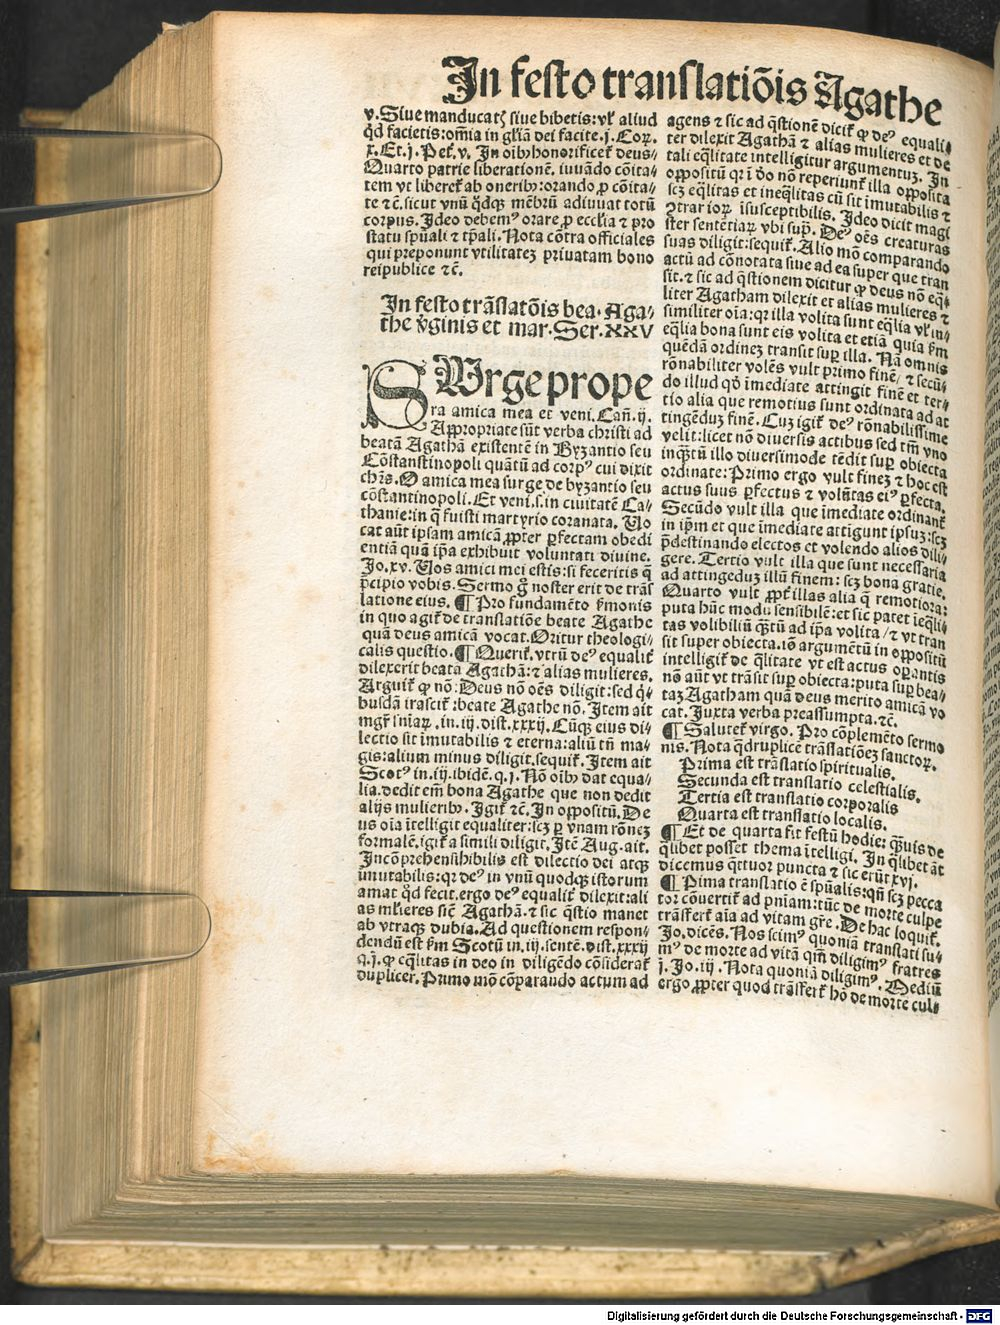 In festo translatiõis Agathe
v. Siue manducatꝭ siue bibetis: vƚ aliud
qd facietis: om̃ia in gƚiã dei facite. j. Coꝝ.
x. Et. j. Pet̃. v. In oibꝰ honorificet̃ deus⸗
Quarto patrie liberationẽ. iuuãdo cõita⸗
tem vt liberet̃ ab oneribꝰ: orando ꝓ cõita⸗
te ⁊c̃. sicut vnũ qd̃qꝫ mẽbrũ adiuuat totũ
corpus. Ideo debemꝰ orare ꝓ ecclia et pro
statu spũali ⁊ tp̃ali. Nota cõtra officiales
qui preponunt vtilitateꝫ priuatam bono
reipublice ⁊c̃.
In festo trãslatõis bea. Aga⸗
the v̾ginis et mar. Ser. XXV
SUrge prope
ra amica mea et veni. Cañ. ij.
Appropriate sũt verba christi ad
beatã Agathã existentẽ in Byzantio seu
Cõstanstinopoli quãtũ ad corpꝰ cui dixit
chr̃s. O amica mea surge de byzantio seu
cõstantinopoli. Et veni. s. in ciuitatẽ Ca⸗
thanie: in q̃ fuisti martyrio coranata. Uo
cat aũt ipsam amicã ꝓpter ꝑfectam obedi
entiã quã ip̃a exhibuit voluntati diuine.
Jo. xv. Uos amici mei estis: si feceritis q̃
p̃cipio vobis. Sermo g̃ noster erit de trãs
latione eius. ¶ Pro fundamẽto s̾monis
in quo agit̃ de translatiõe beate Agathe
quã deus amicã vocat. Oritur theologi⸗
calis questio. ¶ Querit̃. vtrũ deꝰ equalit̃
dilexerit beatã Agathã: ⁊ alias mulieres.
Arguit̃ ꝙ nõ: Deus nõ oẽs diligit: sed q̃⸗
busdã irascit̃: beate Agathe nõ. Item ait
mgr̃ sñiaꝝ. in. iij. dist. xxxij. Cũqꝫ eius di⸗
lectio sit ĩmutabilis ⁊ eterna: aliũ tñ ma⸗
gis: alium minus diligit. sequit̃. Item ait
Scotꝰ in. iij. ibidẽ. q. j. Nõ oibꝰ dat equa⸗
lia. dedit em̃ bona Agathe que non dedit
alijs mulieribꝰ. Igit̃ ⁊c̃. In oppositũ. De
us oĩa ĩtelligit equaliter: scꝫ ꝑ vnam rõneꝫ
formalẽ. igit̃ a simili diligit. Itẽ Aug. ait.
Incõprehensibibilis est dilectio dei atqꝫ
ĩmutabilis: qꝛ deꝰ in vnũ quodqꝫ istorum
amat qd̃ fecit. ergo deꝰ equalit̃ dilexit: ali
as mƚieres sic̃ Agathã. ⁊ sic q̃stio manet
ab vtraqꝫ dubia. Ad questionem respon⸗
dendũ est s̾m Scotũ in. iij. sentẽ. dist. xxxij
q. j. ꝙ eq̃litas in deo in diligẽdo cõsiderat̃
dupliceꝛ. Primo mõ cõparando actum ad
agens ⁊ sic ad q̃stionẽ dicit̃ ꝙ deꝰ equali⸗
ter dilexit Agathã ⁊ alias mulieres et de
tali eq̃litate intelligitur argumentuꝫ. In
oppositũ qꝛ ĩ dõ nõ reperiunt̃ illa opposita
scꝫ eq̃litas et ineq̃litas cũ sit ĩmutabilis ⁊
ꝯtrarioꝝ ĩsusceptibilis. Ideo dicit magi
ster sententiaꝝ vbi sup̃. Deꝰ oẽs creaturas
suas diligit: sequit̃. Alio mõ comparando
actũ ad cõnotata siue ad ea super que tran
sit. ⁊ sic ad q̃stionem dicitur ꝙ deus nõ eq̃⸗
liter Agatham dilexit et alias mulieres ⁊
similiter oĩa: qꝛ illa volita sunt eq̃lia vƚ in⸗
eq̃lia bona sunt eis volita et etiã quia s̾m
quẽdã ordineꝫ transit suꝑ illa. Nã omnis
rõnabiliter volẽs vult primo finẽ / ⁊ secũ⸗
do illud qđ ĩmediate attingit finẽ et ter⸗
tio alia que remotius sunt ordinata ad at
tingẽduꝫ finẽ. Cuꝫ igit̃ deꝰ rõnabilissime
velit: licet nõ diuersis actibus sed tm̃ vno
inqꝫtũ illo diuersimode tẽdit suꝑ obiecta
ordinate: Primo ergo vult fineꝫ ⁊ hoc est
actus suus ꝑfectus ⁊ volũtas eiꝰ ꝑfecta.
Secũdo vult illa que ĩmediate ordinant̃
in ip̃m et que ĩmediate attigunt ipsuꝫ: scꝫ
p̃destinando electos et volendo alios dili⸗
gere. Tertio vult illa que sunt necessaria
ad attingeduꝫ illũ finem: scꝫ bona gratie.
Quarto vult ꝓpt̃ illas alia q̃ remotiora:
puta hũc modũ sensibilẽ: et sic patet ĩeq̃li⸗
tas volibiliũ q̃tũ ad ip̃a volita / ⁊ vt tran
sit super obiecta. iõ argumẽtũ in oppositũ
intelligit̃ de q̃litate vt est actus oꝑantis
nõ aũt vt trãsit suꝑ obiecta: puta suꝑ bea⸗
taꝫ Agatham quã deus merito amicã vo
cat. Juxta verba preassumpta. ⁊c̃.
¶ Salutet̃ virgo. Pro cõplemẽto sermo
nis. Nota q̃druplicẽ trãslatiõeꝫ sanctoꝝ.
Prima est trãslatio spiritualis.
Secunda est translatio celestialis.
Tertia est translatio corporalis
Quarta est translatio localis.
¶ Et de quarta fit festũ hodie: q̃uis de
q̃libet posset thema ĩtelligi. In q̃libet ãt
dicemus q̃ttuor puncta ⁊ sic erũt xvj.
¶ Pima translatio ẽ spũalis: qñ scꝫ pecca
tor cõuertit̃ ad pniam: tũc de morte culpe
trãsfert̃ aĩa ad vitam gr̃e. De hac loquit̃.
Jo. dicẽs. Nos scimꝰ quoniã translati su⸗
mꝰ de morte ad vitã qm̃ diligimꝰ fratres
j. Jo. iij. Nota quoniã diligimꝰ. Mediũ
ergo ꝓpter quod trãsfert̃ hõ de morte cul⸗
Digitalisierung gefördert durch die Deutsche Forschungsgemeinschaft - DFG